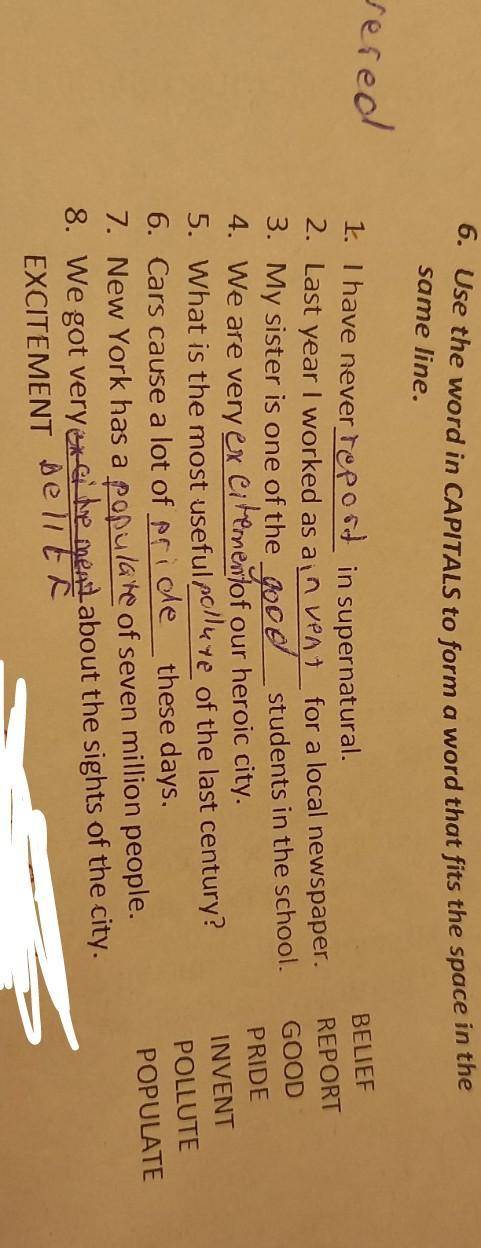 rered
6. Use the word in CAPITALS to form a word that fits the space in the
same line.
1. I have never report in supernatural. BELIEF
2. Last year I worked as a invent for a local newspaper. REPORT
3. My sister is one of the good students in the school. GOOD
4. We are very excitement of our heroic city. PRIDE
5. What is the most useful pollute of the last century? INVENT
6. Cars cause a lot of pride these days. POLLUTE
7. New York has a populate of seven million people. POPULATE
8. We got very about the sights of the city.
EXCITEMENT